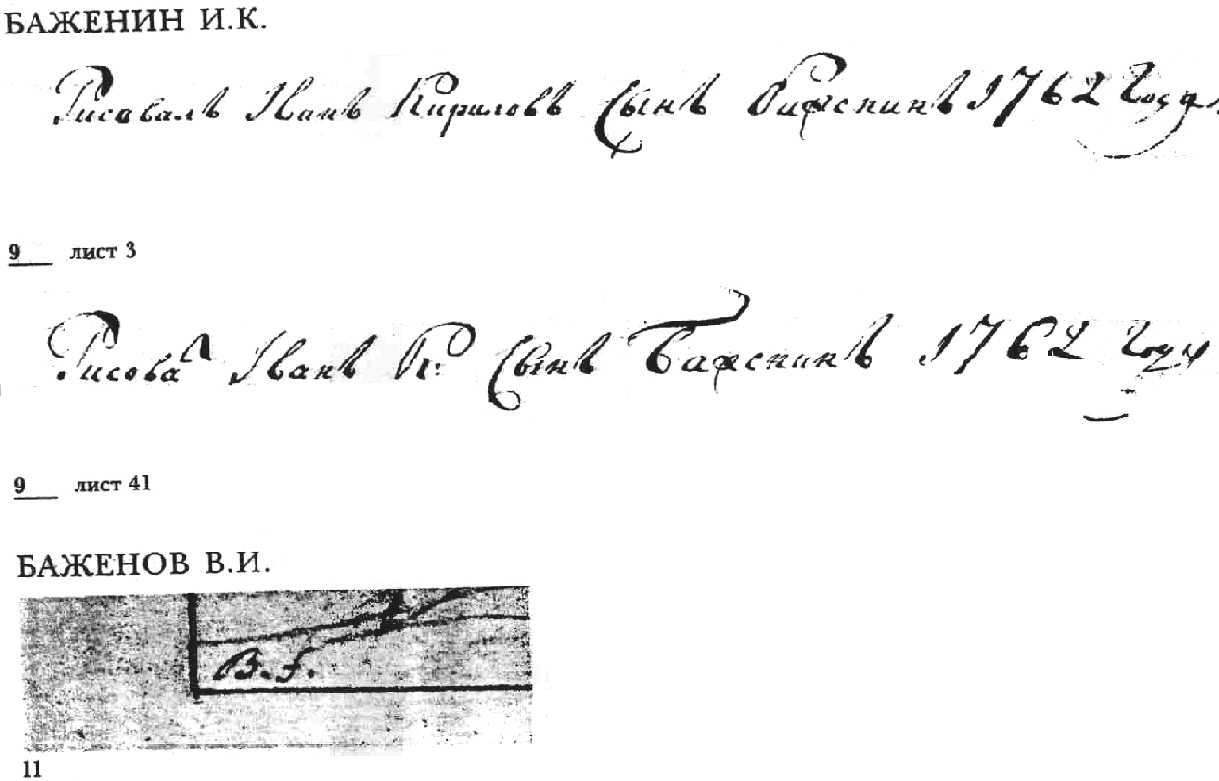 БАЖЕНИН И.К.
Рисовалъ Iванъ Кириловъ Сынъ Бажснинъ 1762 Году
9 лист 3
Рисовал Iванъ К. Сынъ Бажснинъ 1762 Году
9 лист 41
БАЖЕНОВ В.И.
B. f.
11